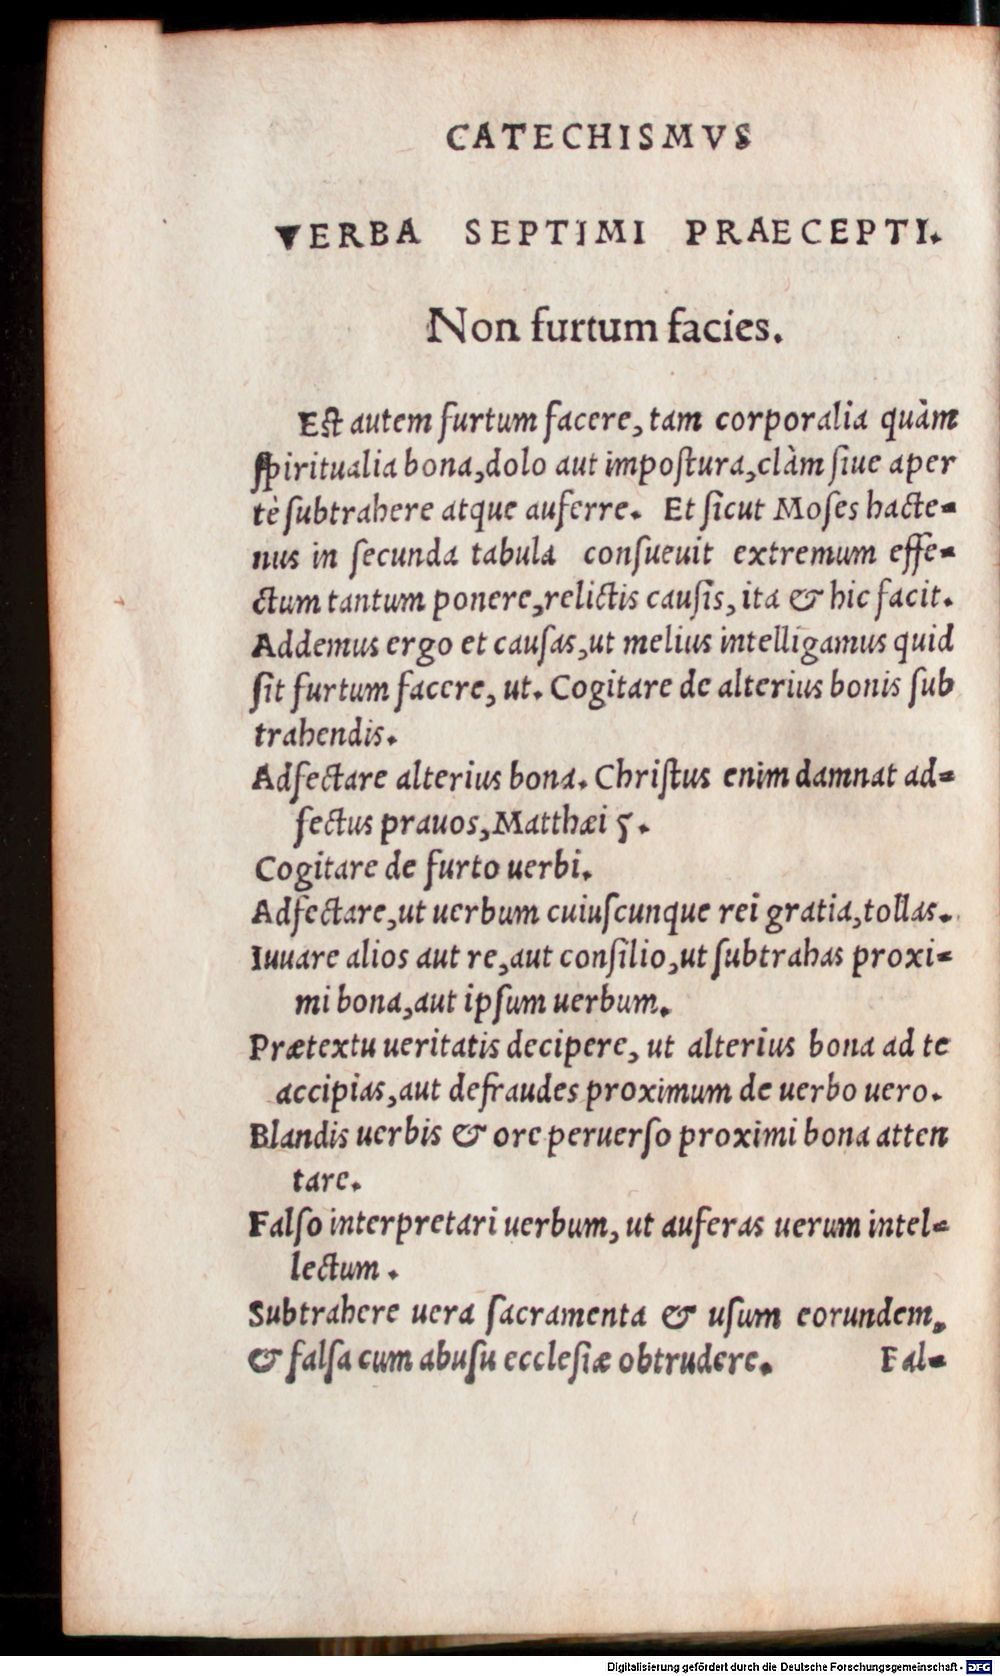 CATECHISMVS
VERBA SEPTIMI PRAECEPTI.
Non furtum facies.
Est autem furtum facere, tam corporalia quàm
ſpiritualia bona, dolo aut impoſtura, clàm ſiue aper
tè ſubtrahere atque auferre. Et ſicut Moſes hacte-
nus in ſecunda tabula conſueuit extremum effe-
ctum tantum ponere, relictis cauſis, ita & hic facit.
Addemus ergo et cauſas, ut melius intelligamus quid
ſit furtum facere, ut. Cogitare de alterius bonis ſub
trahendis.
Adfectare alterius bona. Chriſtus enim damnat ad-
fectus prauos, Matthæi 5.
Cogitare de furto uerbi.
Adfectare, ut uerbum cuiuſcunque rei gratia, tollas.
Iuuare alios aut re, aut conſilio, ut ſubtrahas proxi-
mi bona, aut ipſum uerbum.
Prætextu ueritatis decipere, ut alterius bona ad te
accipias, aut defraudes proximum de uerbo uero.
Blandis uerbis & ore peruerſo proximi bona atten
tare.
Falſo interpretari uerbum, ut auferas uerum intel-
lectum.
Subtrahere uera ſacramenta & uſum eorundem,
& falſa cum abuſu eccleſiæ obtrudere. Fal-
Digitalisierung gefördert durch die Deutsche Forschungsgemeinschaft - DFG